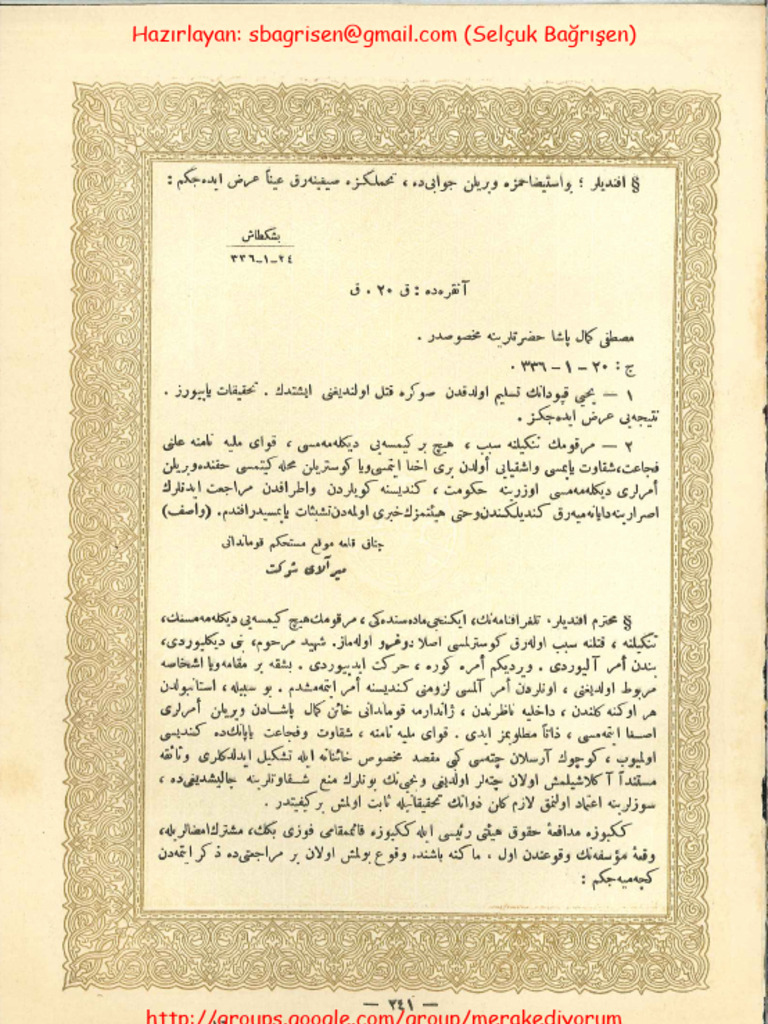 Hazırlayan: sbagrisen@gmail.com (Selçuk Bağrışen)
§ افندیلر ؛ بواستیضاحمزه ویریلن جوابی‌ده ، تحملکزه صیغینه‌رق عیناً عرض ایده‌جکم :
بشكطاش
٢٤-١-٣٣٦
آنقره‌ده : ق ٢٠ . ق
مصطفی کمال پاشا حضرتلرینه مخصوصدر .
ج : ٢٠ – ١ – ٣٣٦ .
١ — یحیی قپودانك تسلیم اولدقدن صوکره قتل اولندیغنی ایشتدك . تحقیقات یاپیورز .
نتیجه‌یی عرض ایده‌جکز .
٢ — مرقومك تنکیلنه سبب ، هیچ بر کیمسه‌یی دیکله‌مه‌مسی ، قوای ملیه نامنه علنی
فجاعت، شقاوت یاپمسی واشقیایی أولدن بری اخفا ایتمسی ویا کوستریلن محله کیتمسی حقنده ویریلن
أمرلری دیکله‌مه‌مسی اوزرینه حکومت ، کندیسنه کویلردن واطرافدن مراجعت ایدنلرك
اصرارینه دایانه‌میه‌رق کندیلکندن وحتی هیئتمزك خبری اولمه‌دن تشبثات یاپمسیدر افندم. (واصف)
چناق قلعه موقع مستحکم قوماندانی
میرآلای شوکت
§ محترم افندیلر، تلغرافنامه‌نك، ایکنجی ماده‌سنده‌کی ، مرقومك هیچ کیمسه‌یی دیکله‌مه‌مسنك،
تنکیلنه ، قتلنه سبب اوله‌رق کوسترلمسی اصلا دوغرو اوله‌ماز. شهید مرحوم، بنی دیکلیوردی،
بندن أمر آلیوردی . ویردیکم أمره کوره ، حرکت ایدییوردی . بشقه بر مقامه ویا اشخاصه
مربوط اولدیغنی ، اونلردن أمر آلمسی لزومنی کندیسنه أمر ایتمه‌مشدم . بو سبیله ، استانبولدن
هر اوکنه کلندن ، داخلیه ناظرندن ، ژاندارمه قوماندانی خائن کمال پاشادن ویریلن أمرلری
اصغا ایتمه‌مسی ، ذاتاً مطلوبمز ایدی . قوای ملیه نامنه ، شقاوت وفجاعت یاپانك‌ده کندیسی
اولمیوب ، کوچوك آرسلان چته‌سی کبی مقصد مخصوص خائنانه ایله تشکیل ایدلدکلری وثائقه
مستنداً آکلاشیلمش اولان چته‌لر اولدیغی ویحیی‌نك بونلرك منع شقاوتلرینه چالیشدیغی‌ده ،
سوزلرینه اعتماد اولنمق لازم کلن ذواتك تحقیقاتیله ثابت اولمش بر کیفیتدر .
ککبوزه مدافعهٔ حقوق هیئتی رئیسی ایله ککبوزه قائممقامی فوزی بکك، مشترك امضالریله،
وقعهٔ مؤسفه‌نك وقوعندن اول ، ماکنه باشنده وقوع بولمش اولان بر مراجعتی‌ده ذکر ایتمه‌دن
کچه‌میه‌جکم :
— ٣٤١ —
http://groups.google.com/group/merakediyorum